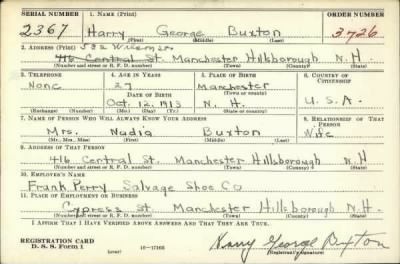 SERIAL NUMBER 1. NAME (Print) ORDER NUMBER
2367 Harry George Buxton 3726
(First) (Middle) (Last)
2. ADDRESS (Print)
416 Central St. Manchester Hillsborough N.H.
(Number and street or R. F. D. number) (Town) (County) (State)
3. TELEPHONE 4. AGE IN YEARS 5. PLACE OF BIRTH 6. COUNTRY OF CITIZENSHIP
None 27 Manchester
DATE OF BIRTH (Town or county)
Oct. 12, 1913 N. H. U.S.A.
(Exchange) (Number) (Mo.) (Day) (Yr.) (State or country)
7. NAME OF PERSON WHO WILL ALWAYS KNOW YOUR ADDRESS 8. RELATIONSHIP OF THAT PERSON
Mrs. Nadia Buxton Wife
(Mr., Mrs., Miss) (First) (Middle) (Last)
9. ADDRESS OF THAT PERSON
416 Central St. Manchester Hillsborough N.H
(Number and street or R. F. D. number) (Town) (County) (State)
10. EMPLOYER'S NAME
Frank Perry Salvage Shoe Co
11. PLACE OF EMPLOYMENT OR BUSINESS
Cypress St. Manchester Hillsborough N.H.
(Number and street or R. F. D. number) (Town) (County) (State)
I AFFIRM THAT I HAVE VERIFIED ABOVE ANSWERS AND THAT THEY ARE TRUE.
REGISTRATION CARD
D. S. S. Form 1 (over) 16—17105 Harry George Buxton
(Registrant's signature)